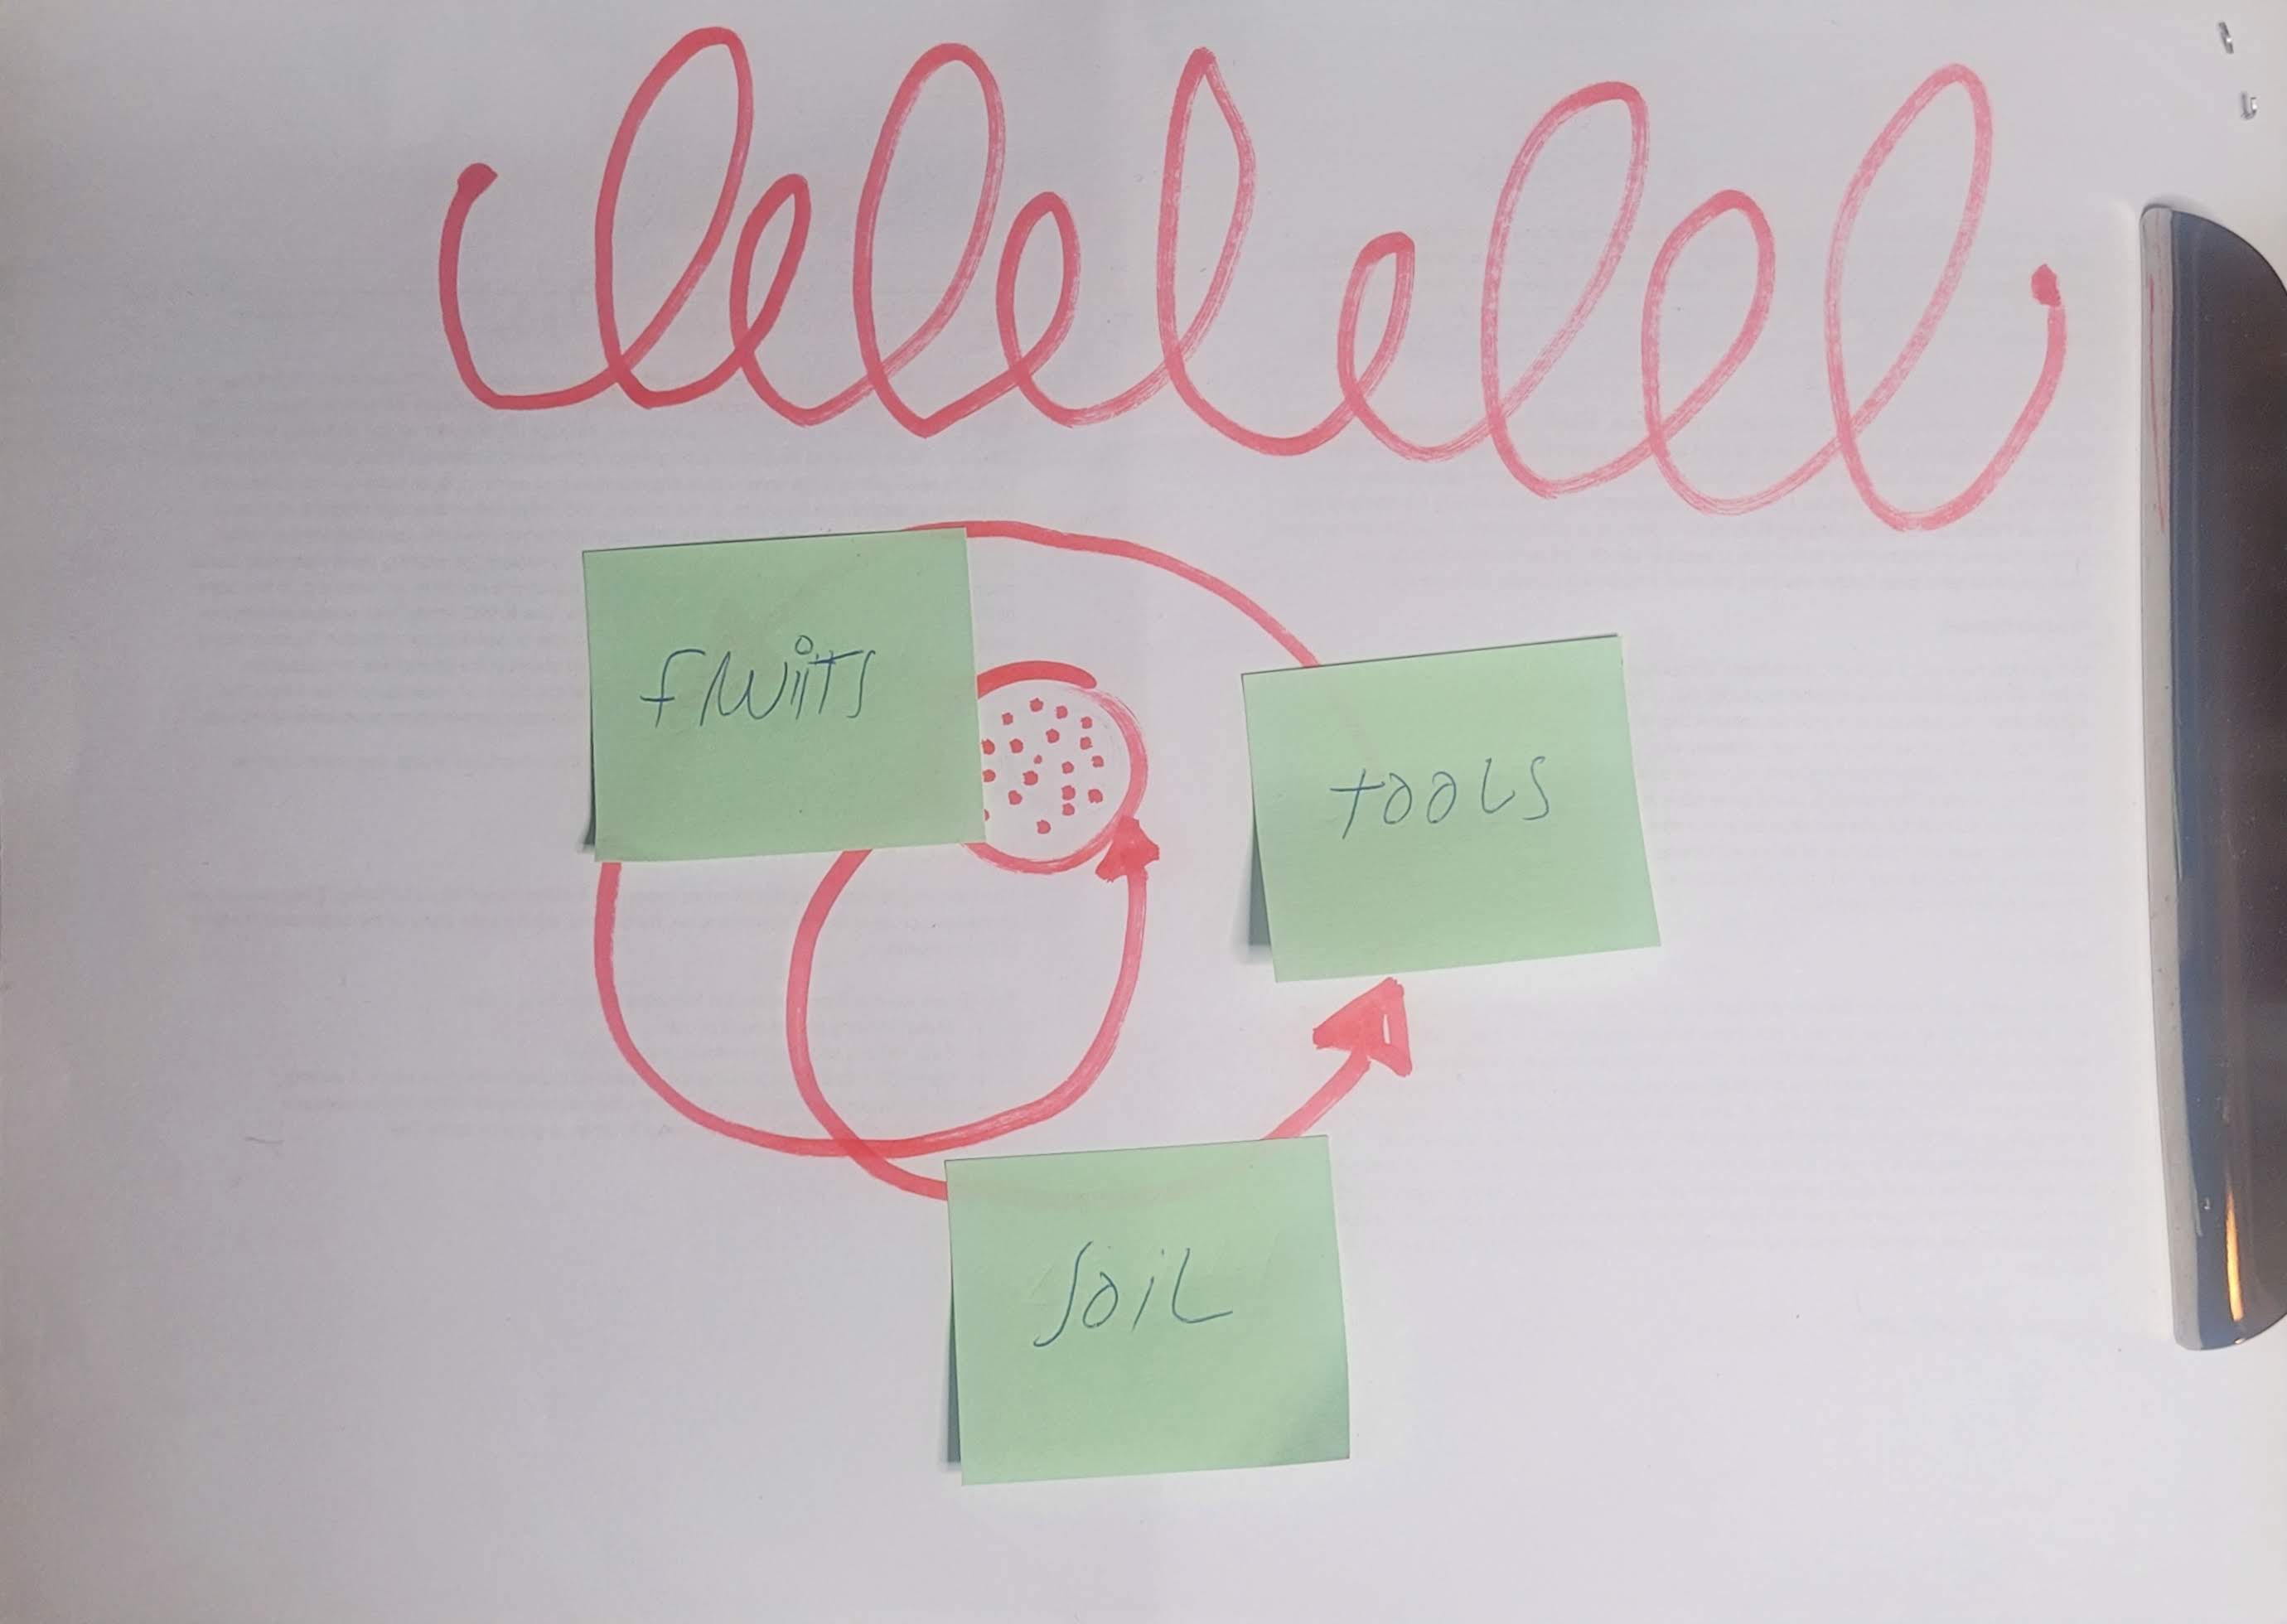 fruits
tools
soil